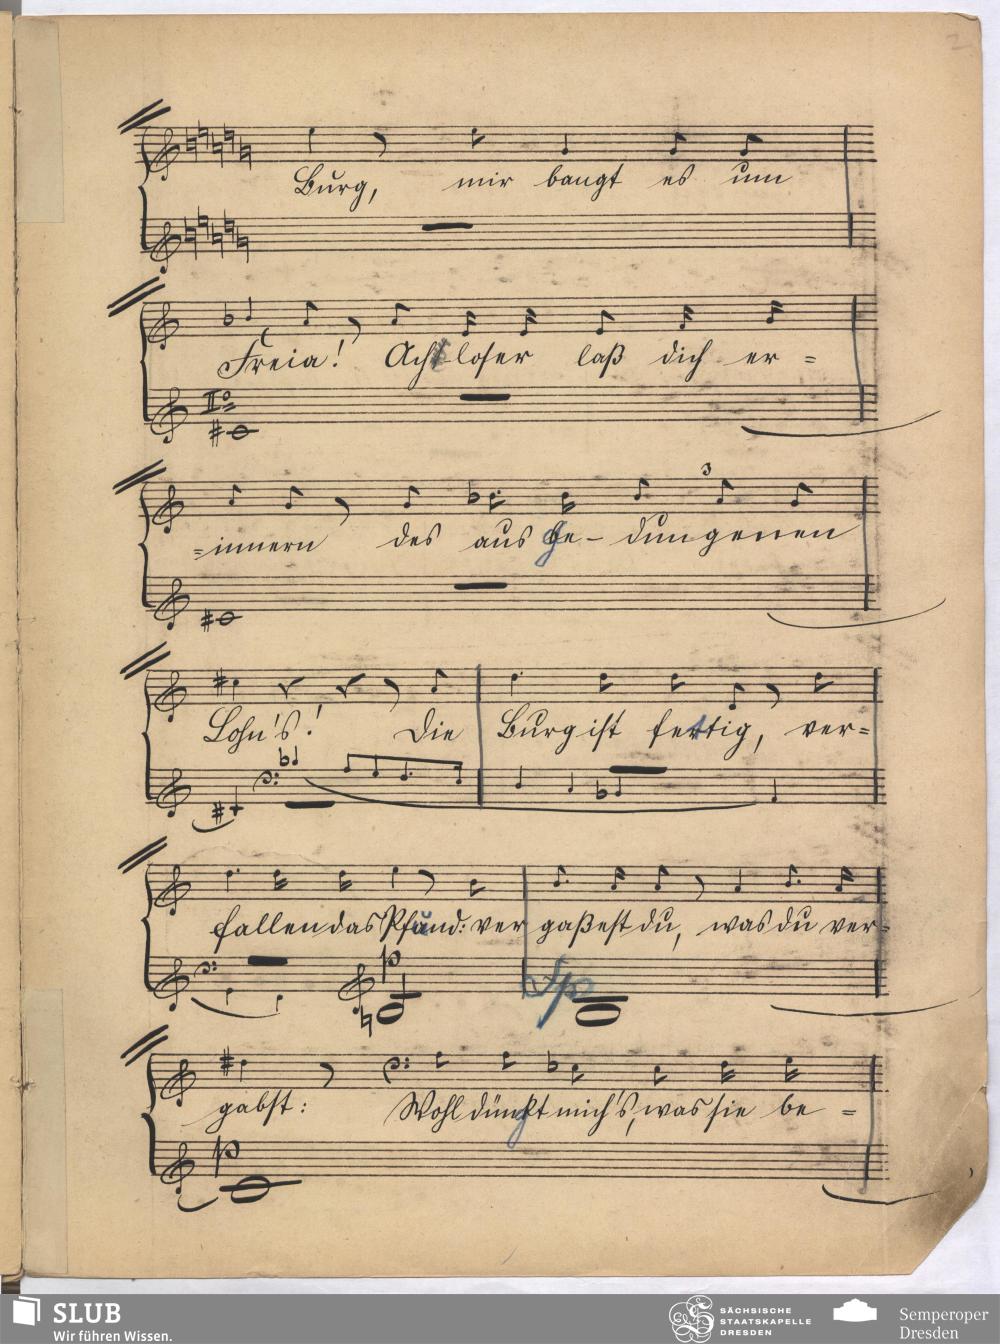 2
Burg, mir bangt es um
Freia! Achtloser laß dich er=
IIo
=innern des aus ge- dungenen
3
Lohn's! Die Burg ist fertig, ver=
fallen das Pfand: ver gaßest du, was du ver-
p
gabst: Wohl dünkt mich's, was sie be =
p
SLUB
Wir führen Wissen.
SÄCHSISCHE
STAATSKAPELLE
DRESDEN
Semperoper
Dresden